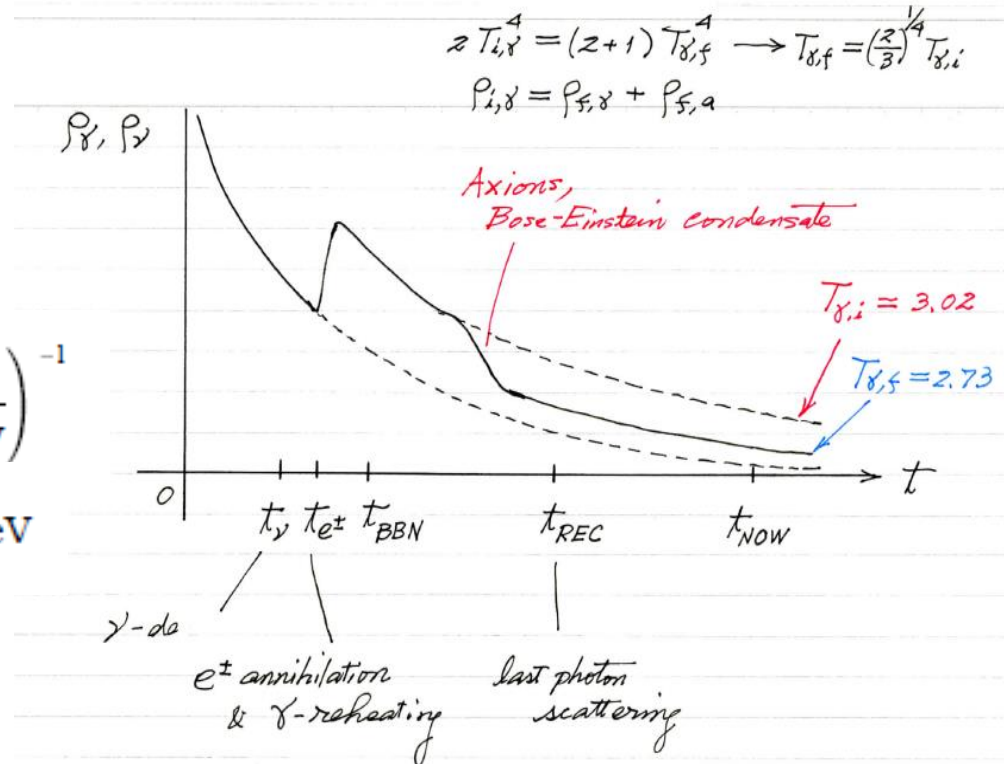 2 T_{i,γ}^4 = (2+1) T_{γ,f}^4 → T_{γ,f} = (2/3)^{1/4} T_{γ,i}
ρ_{i,γ} = ρ_{f,γ} + ρ_{f,a}
ρ_γ, ρ_ν
Axions,
Bose-Einstein condensate
T_{γ,i} = 3.02
T_{γ,f} = 2.73
)^{-1}
eV
0
t_ν t_{e±} t_{BBN} t_{REC} t_{NOW} t
ν-de
e± annihilation
& γ-reheating
last photon
scattering